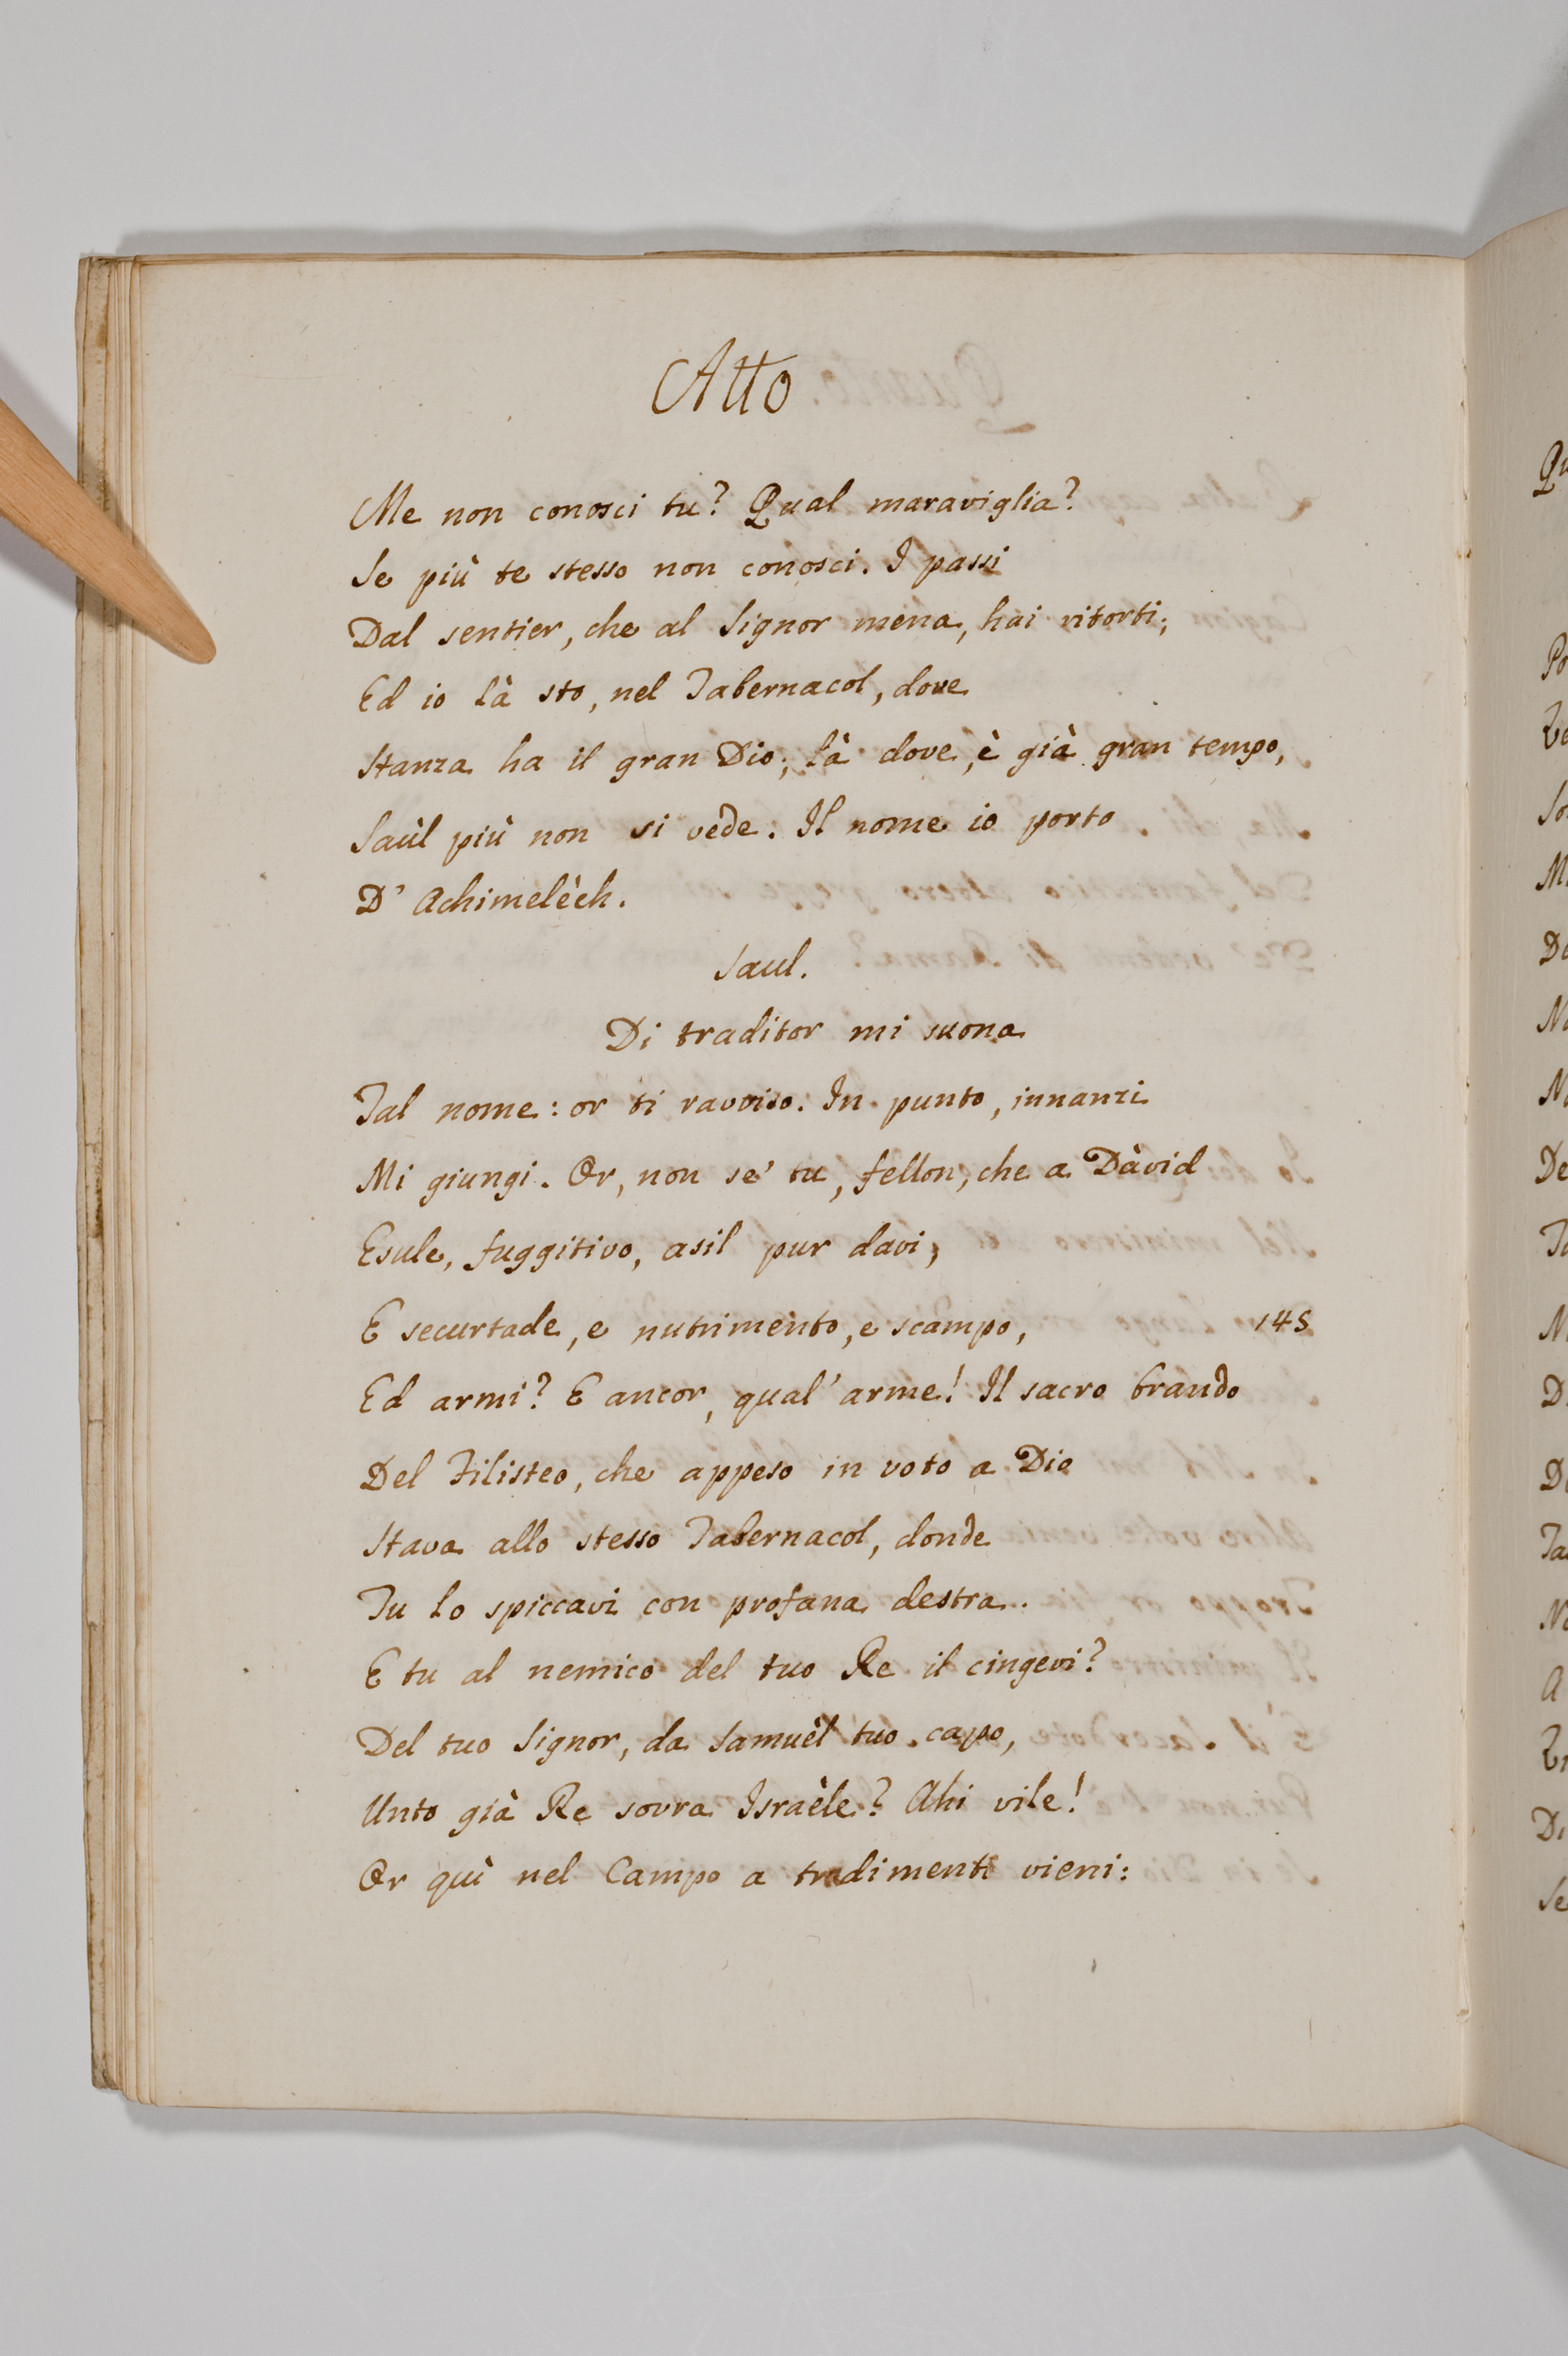 Atto
Me non conosci tu? Qual maraviglia?
Se più te stesso non conosci. I passi
Dal sentier, che al Signor mena, hai ritorti;
Ed io là sto, nel Tabernacol, dove
Stanza ha il gran Dio; là dove, è già gran tempo,
Saùl più non si vede. Il nome io porto
D' Achimelèch.
Saul.
Di traditor mi suona
Tal nome: or ti ravviso. In punto, innanzi
Mi giungi. Or, non se' tu, fellon, che a Dàvid
Esule, fuggitivo, asil pur davi,
E securtade, e nutrimento, e scampo, 145
Ed armi? E ancor, qual' arme! Il sacro brando
Del Filisteo, che appeso in voto a Dio
Stava allo stesso Tabernacol, donde
Tu lo spiccavi con profana destra.
E tu al nemico del tuo Re il cingevi?
Del tuo Signor, da Samuèl tuo capo,
Unto già Re sovra Israèle? Ahi vile!
Or quì nel Campo a tradimenti vieni: